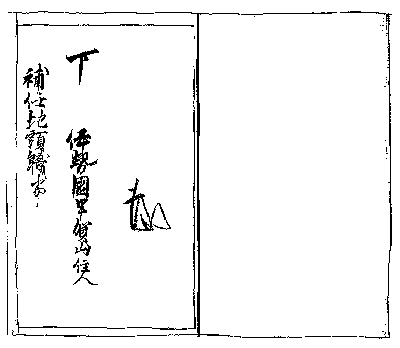 下 伊勢國住人
補任地頭職事